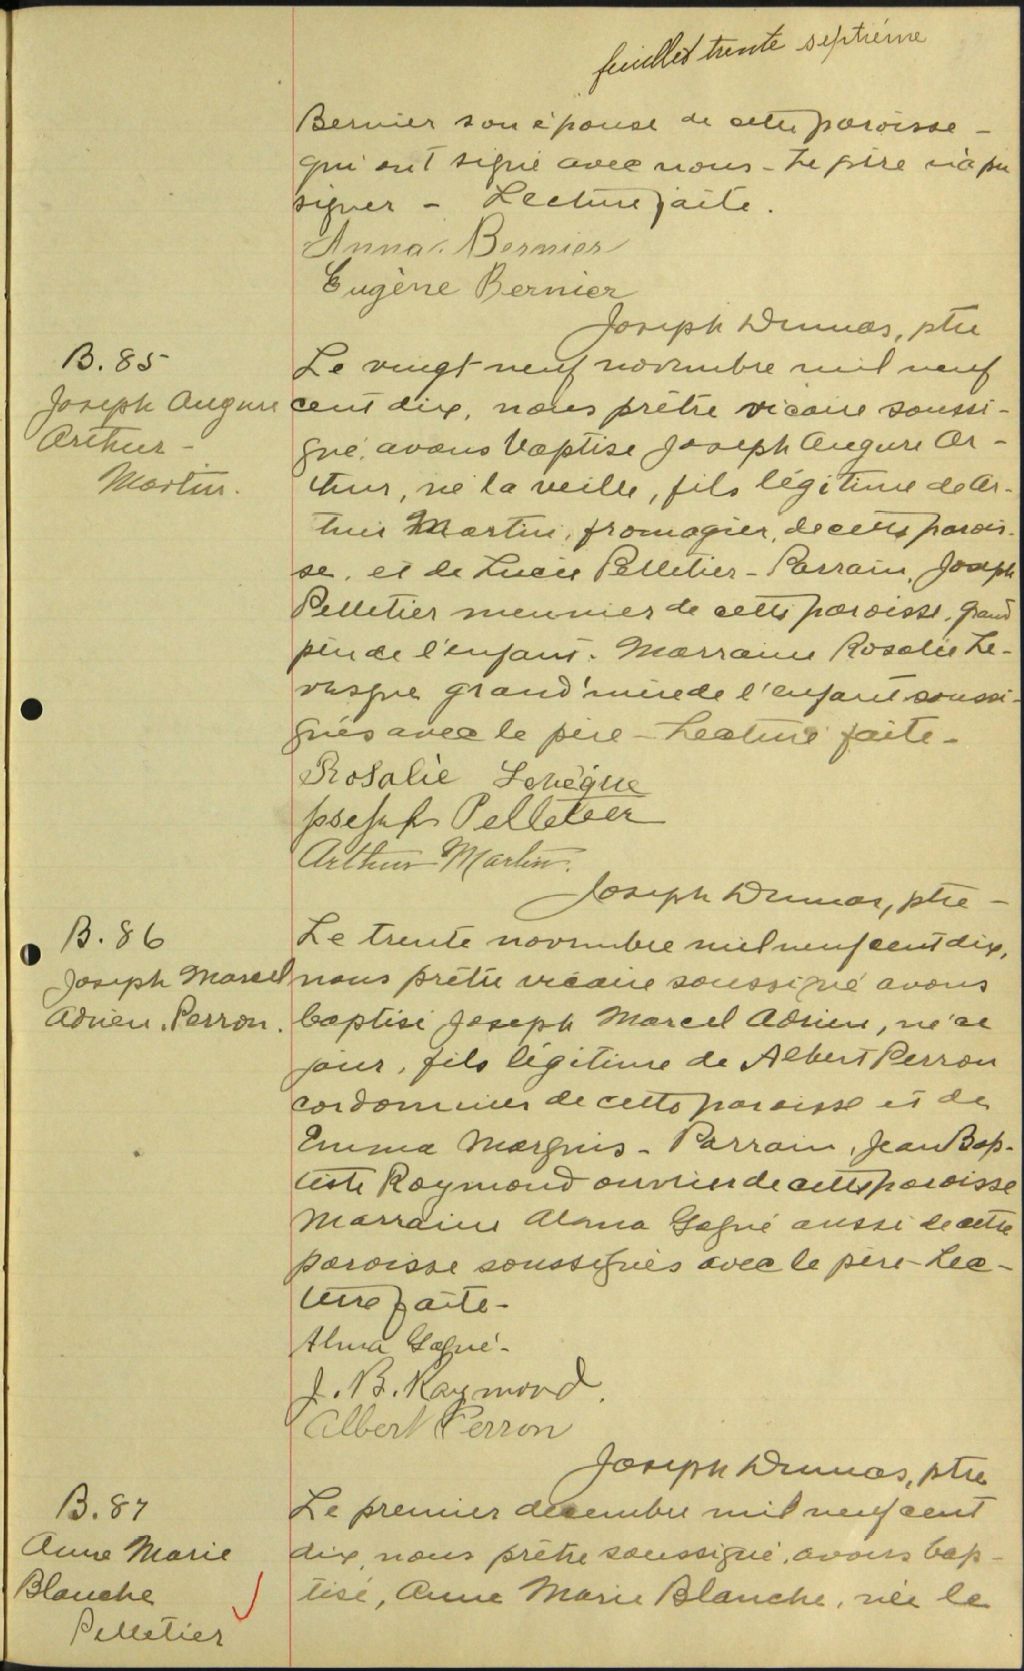 feuillet trente septième
Bernier son épouse de cette paroisse -
qui ont signé avec nous - Le père n'a pu
signer - Lecture faite.
Anna Bernier
Eugène Bernier
Joseph Dumas, ptre
B. 85
Joseph Augure
Arthur -
Martin.
Le vingt neuf novembre mil neuf
cent dix, nous prêtre vicaire soussi-
gné, avons baptisé Joseph Augure Ar-
thur, né la veille, fils légitime de Ar-
thur Martin, fromagier, de cette parois-
se, et de Lucie Pelletier - Parrain, Joseph
Pelletier meunier de cette paroisse, grand
père de l'enfant. Marraine Rosalie Le-
vesque grand'mère de l'enfant soussi-
gnés avec le père - Lecture faite -
Rosalie Levêque
Joseph Pelletier
Arthur Martin.
Joseph Dumas, ptre -
B. 86
Joseph Marcel
Adrien Perron.
Le trente novembre mil neuf cent dix,
nous prêtre vicaire soussigné avons
baptisé Joseph Marcel Adrien, né ce
jour, fils légitime de Albert Perron
cordonnier de cette paroisse et de
Emma Marquis - Parrain, Jean Bap-
tiste Raymond ouvrier de cette paroisse
Marraine Alma Gagné aussi de cette
paroisse soussignés avec le père - Lec-
ture faite -
Alma Gagné -
J. B. Raymond.
Albert Perron
Joseph Dumas, ptre
B. 87
Anne Marie
Blanche
Pelletier
Le premier decembre mil neuf cent
dix, nous prêtre soussigné, avons bap-
tisé, Anne Marie Blanche, née le